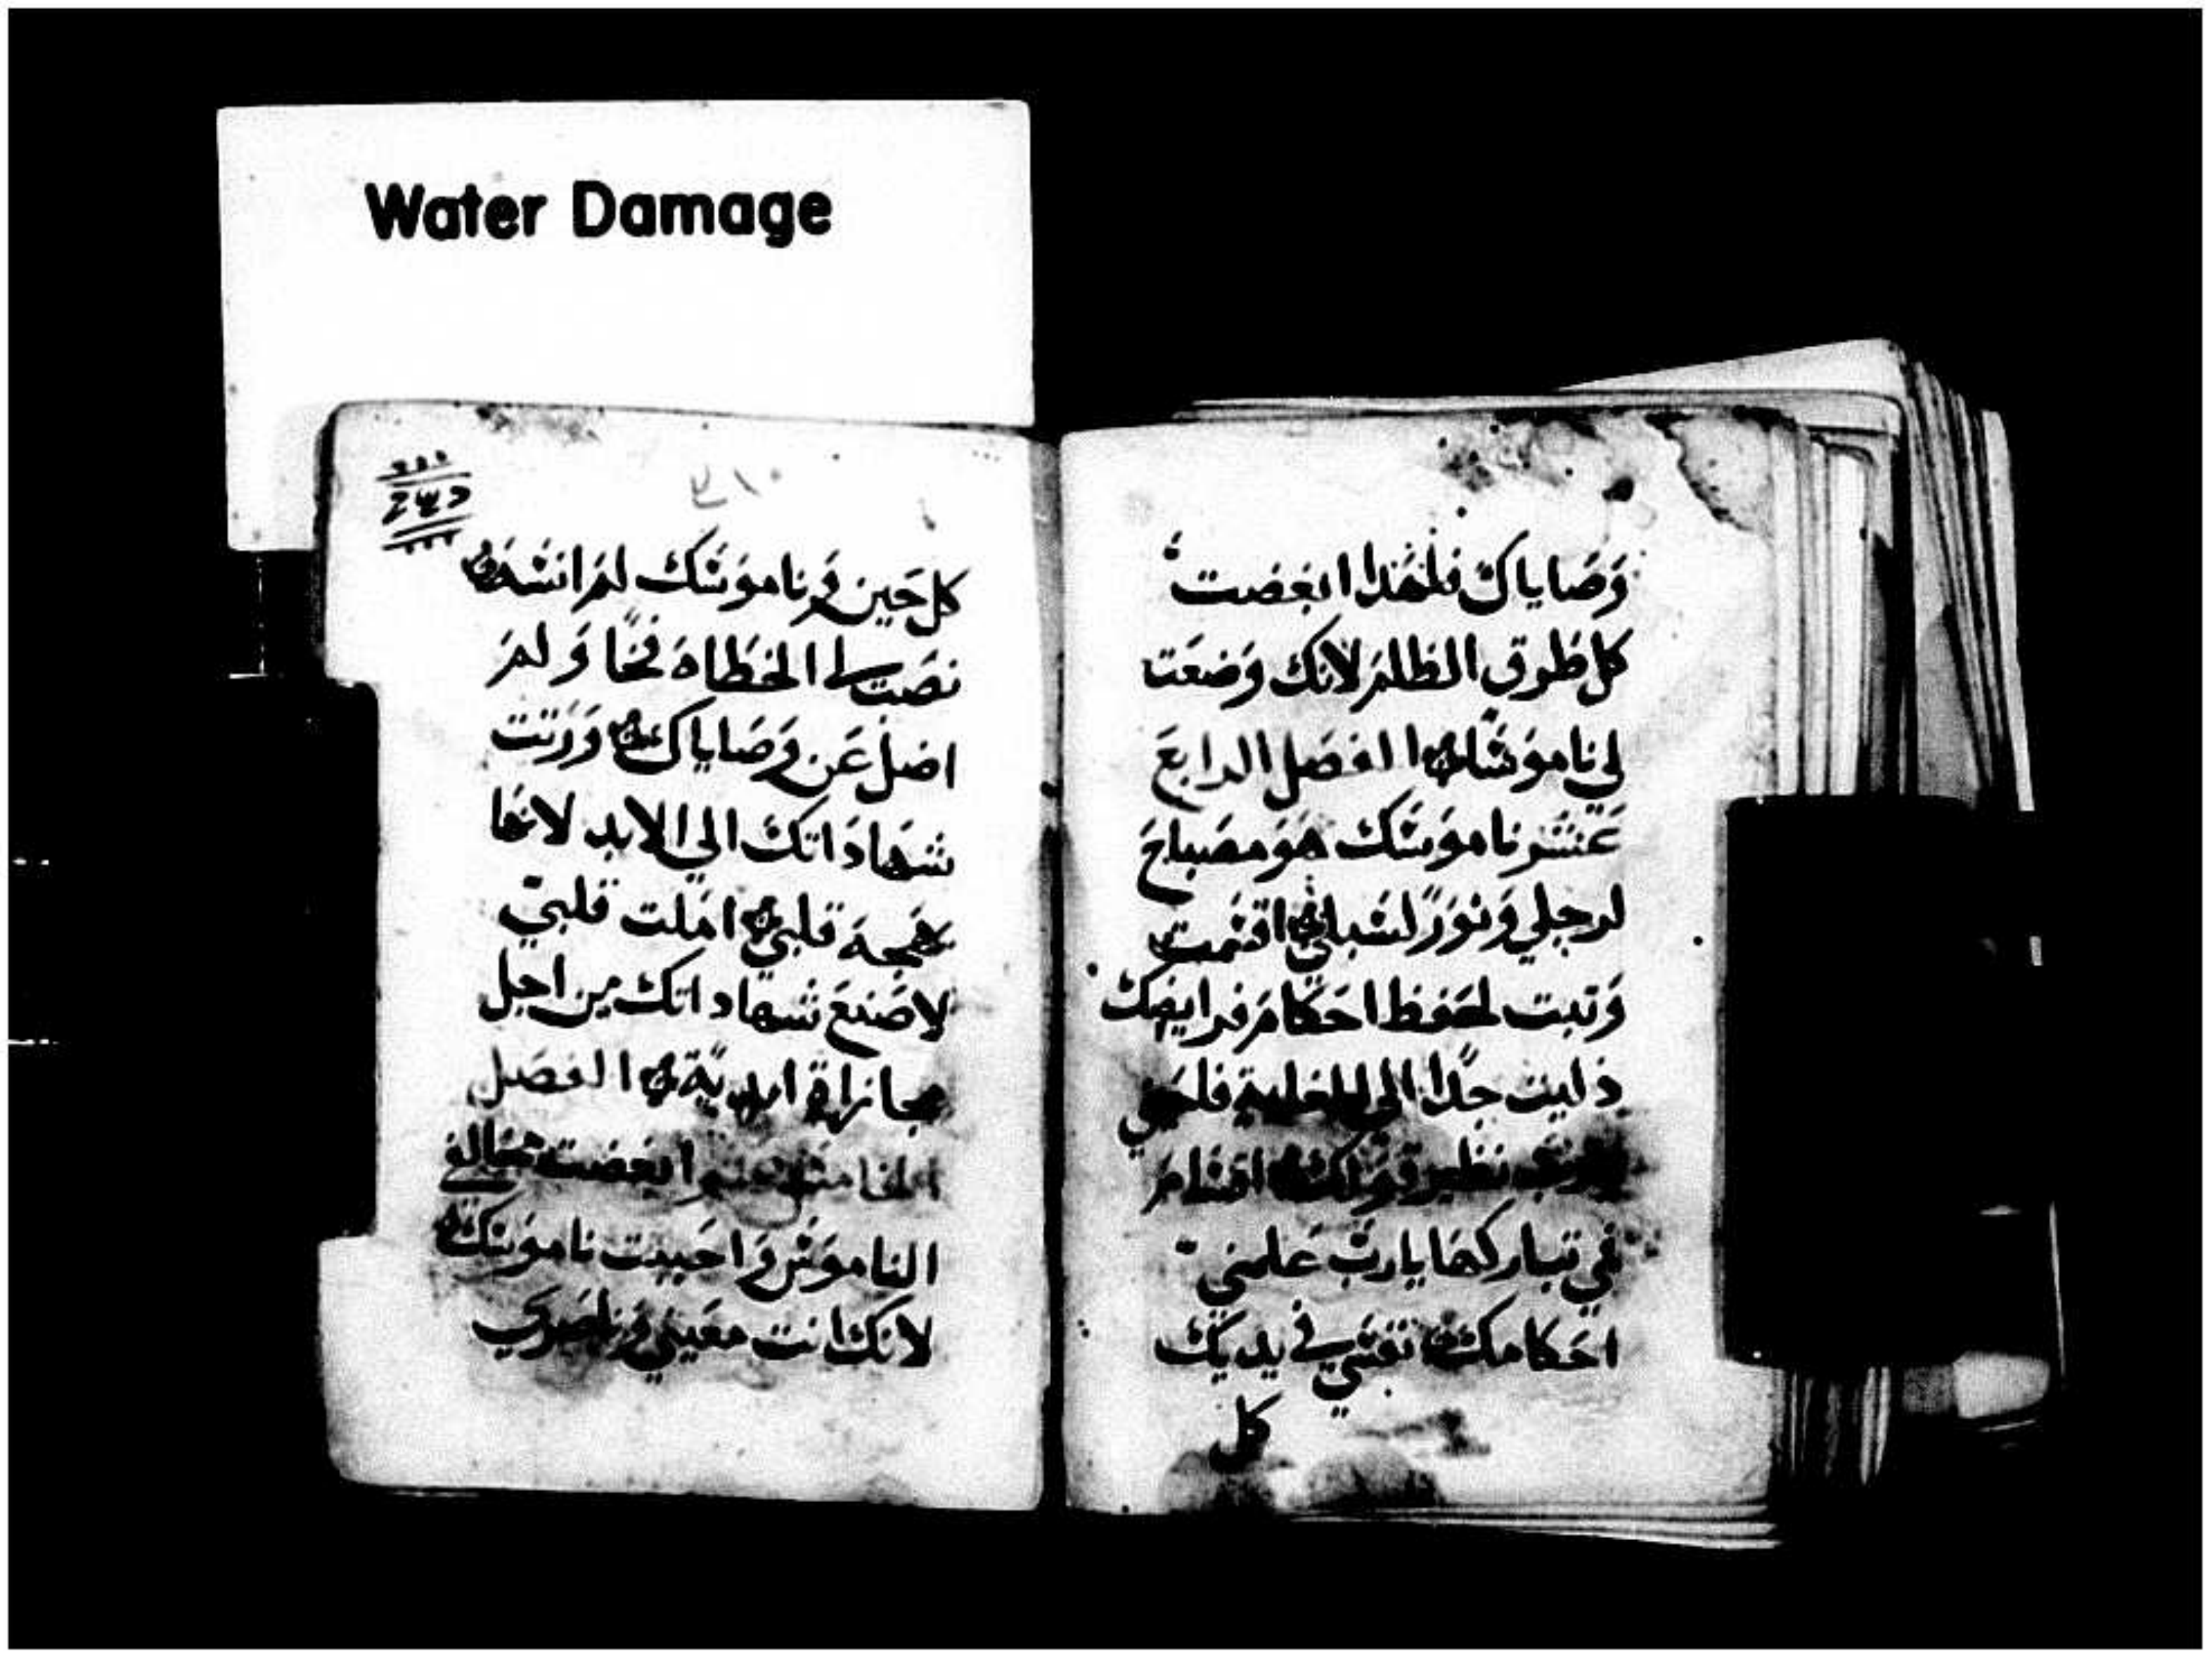 Water Damage
وَصَاياك فلهذا ابغضت
كل طرق الظلم لانك وَضعَت
لي نامونسًا الفصل الرابعَ
عَشر نامونسك هوَ مصَباحَ
لرجلي وَنورًا لسَبلي اقسَمت
وَتبت لحَفظ احَكامَ فرايضك
ذليت جدًا الي الغاية فلحيني
نظير قولك
في تباركها يارب عَلمني
احَكامك نفسي في يديك
كل
٣١٠
كل حَين وَنامونسك لمَ انسَه
نصَبت الخطاة فخًا وَلمَ
اضل عَن وَصَاياك وَرَثت
شهادَاتك الي الابد لانها
بهَجة قلبي امَلت قلبي
لاصَنعَ شهاداتك من اجل
مجازاة ابديَة الفصَل
الخامس عشر ابغضت مخالفي
النامونس وَاحَببت نامونسك
لانك انت معَيني وَناصَري